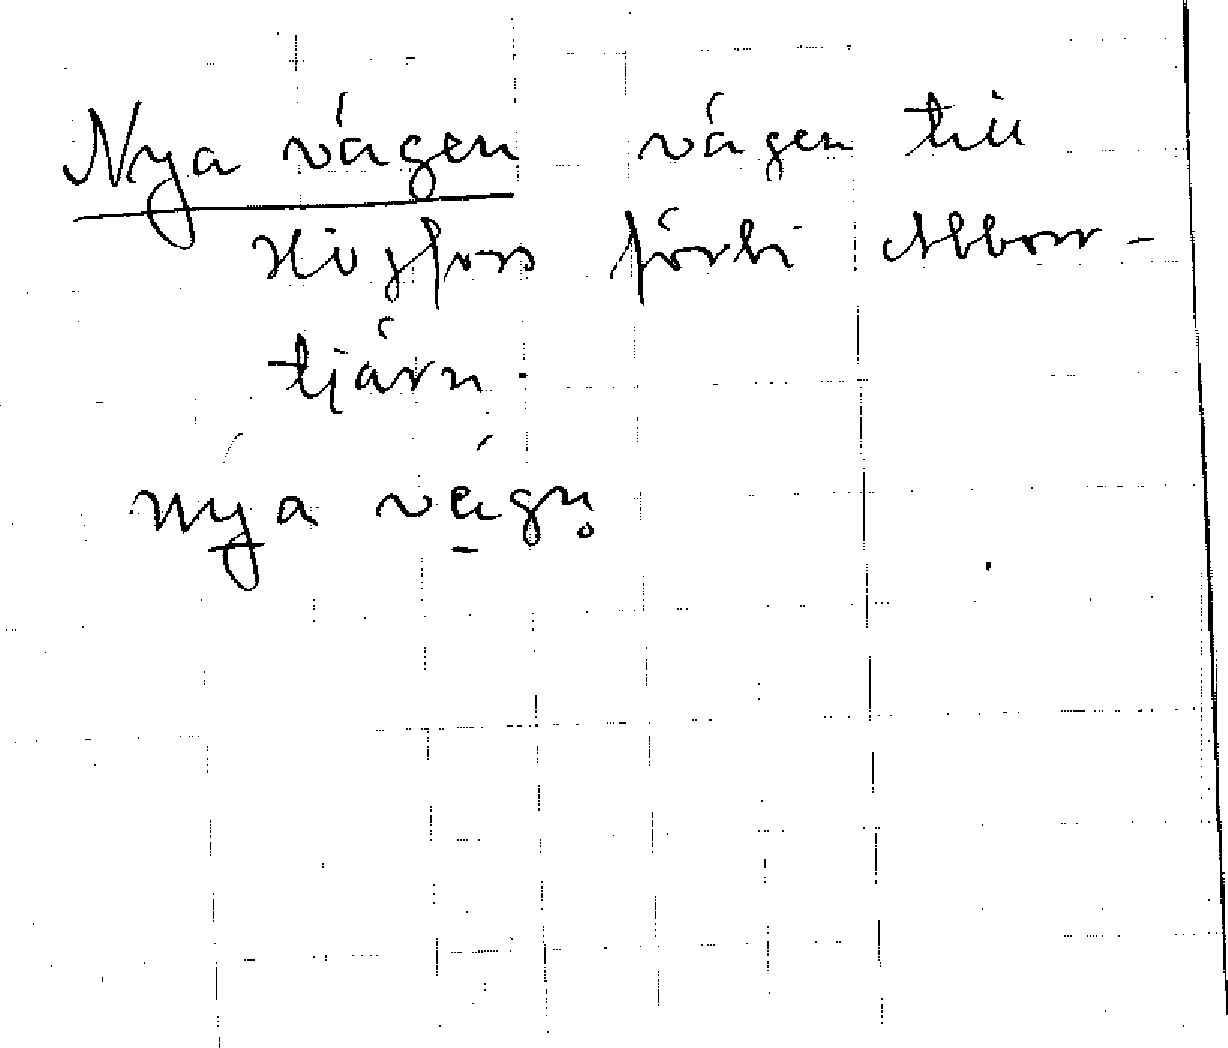 Nya vägen vägen till
Högfors förbi Abborr-
tjärn.
nýa vä́gn̥